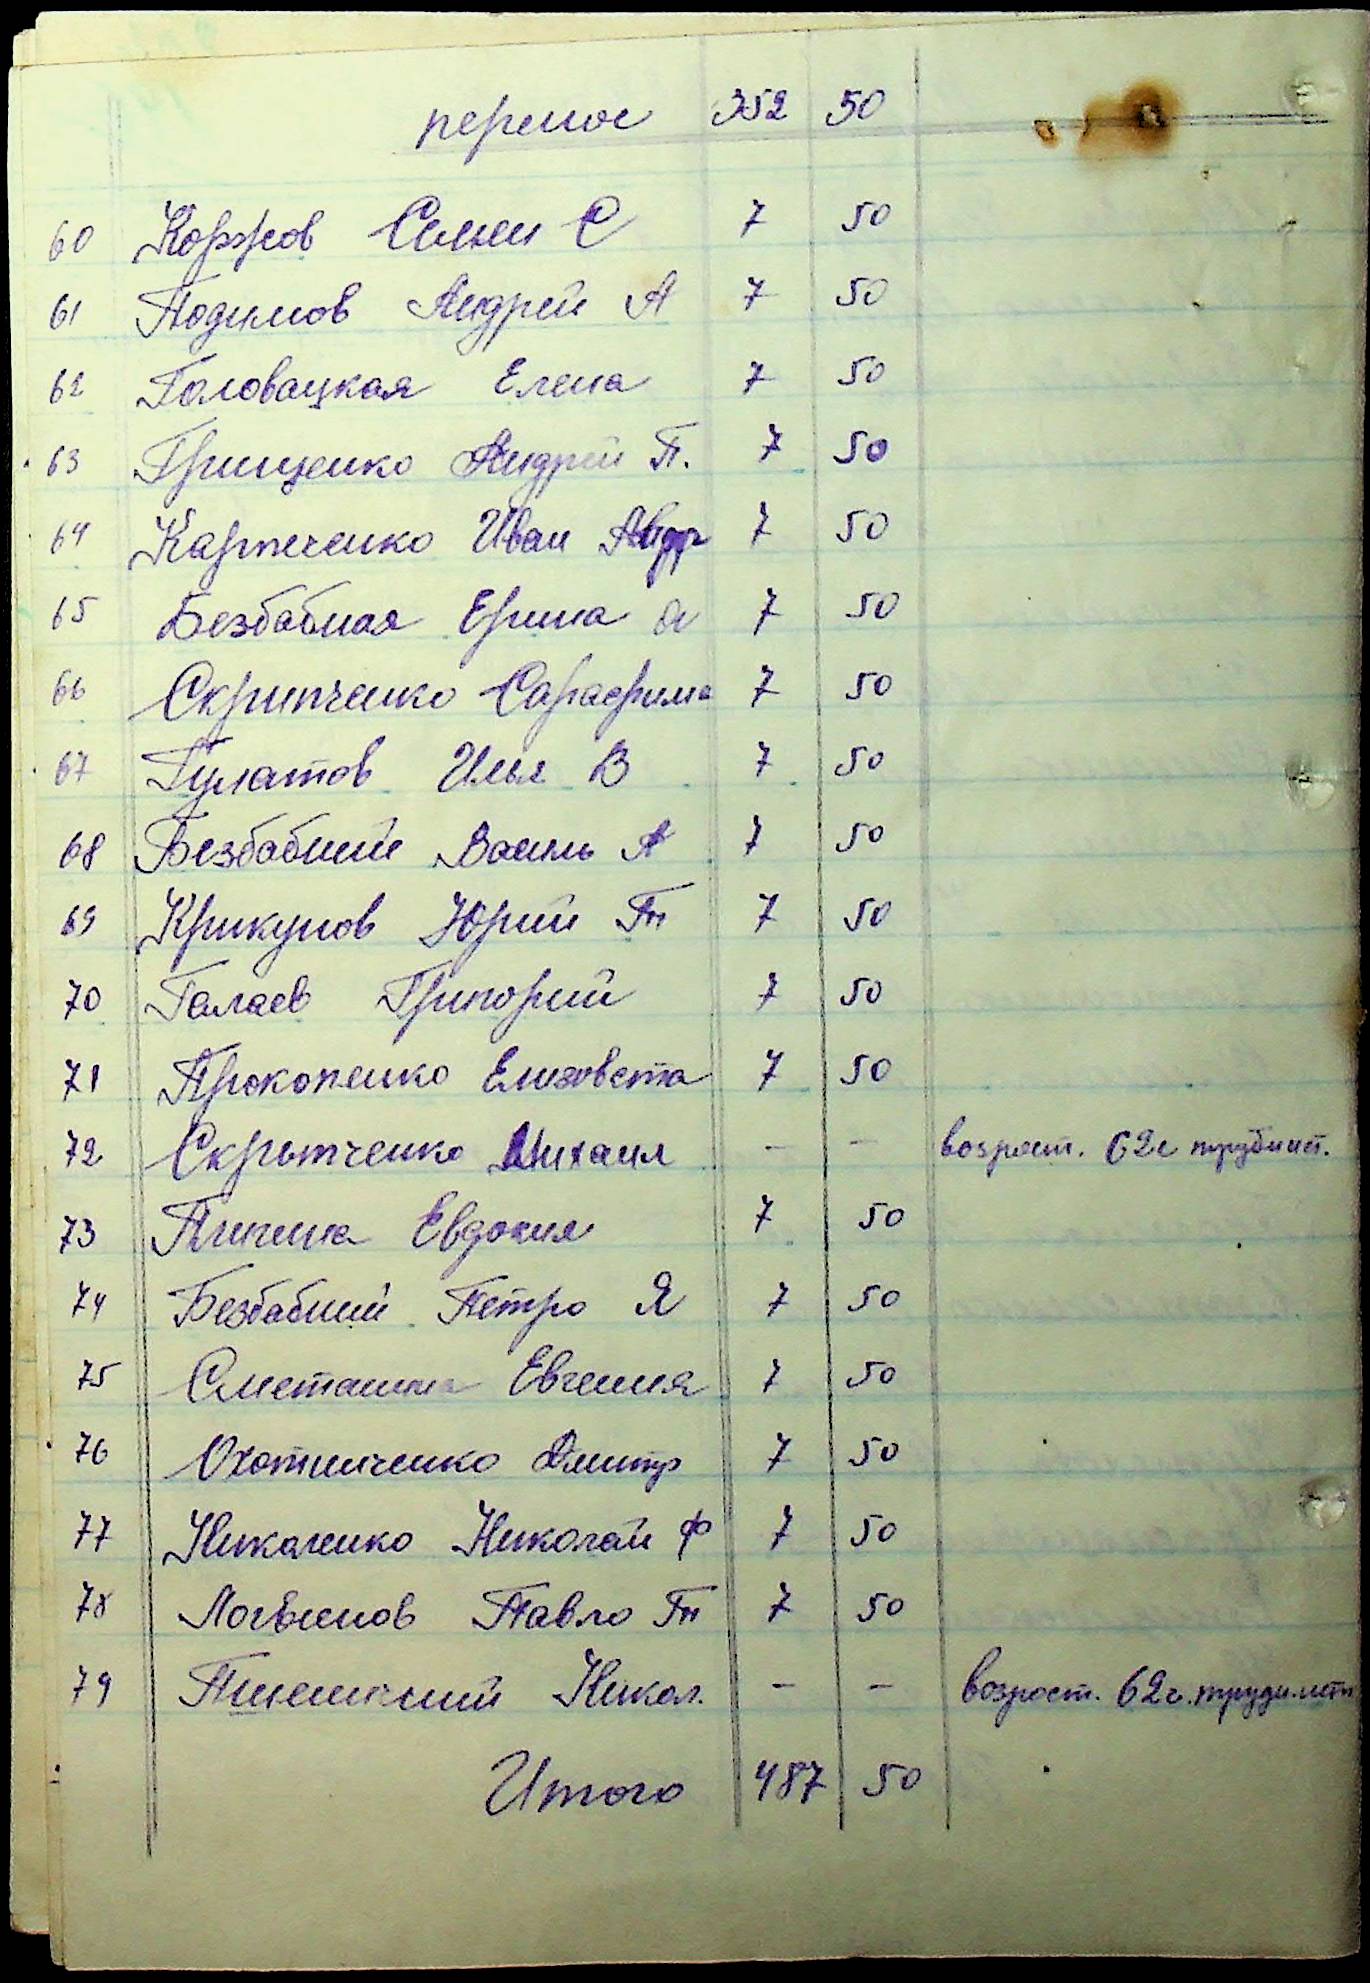 перенос 352 50
60 Коржов Семен С 7 50
61 Подымов Андрей А 7 50
62 Головацкая Елена 7 50
63 Грищенко Андрей П. 7 50
64 Карпеченко Иван Андр 7 50
65 Безбабная Ерина 7 50
66 Скрипченко Сарафима 7 50
67 Гулатов Илья В 7 50
68 Безбабний Василь А 7 50
69 Крикунов Юрий Гн 7 50
70 Галаев Григорий 7 50
71 Прокопенко Елизовета 7 50
72 Скрыпченко Михаил - - возраст. 62г
73 Евдокия 7 50
74 Безбабний Петро Я 7 50
75 Сметанина Евгения 7 50
76 Охотниченко Дмитр 7 50
77 Никаленко Николай Ф 7 50
78 Логвинов Павло Гн 7 50
79 Пшеничний Никол. - - возрост. 62г.
Итого 487 50